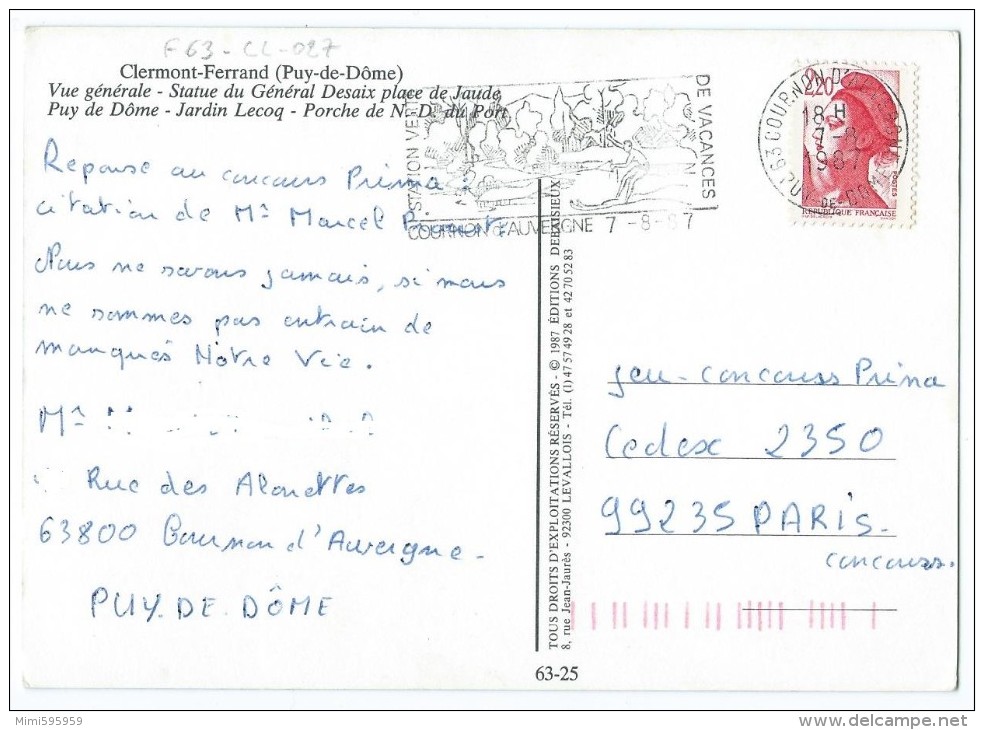 F63-CL-027
Clermont-Ferrand (Puy-de-Dôme)
Vue générale - Statue du Général Desaix place de Jaude
Puy de Dôme - Jardin Lecoq - Porche de N.-D. du Port
Reponse au concours Prima :
citation de Mr Marcel
Nous ne savons jamais, si nous
ne sommes pas entrain de
manqués Notre Vie.
Rue des Alouettes
63800 Cournon d'Auvergne -
PUY.DE.DÔME
STATION VERTE
DE VACANCES
COURNON d'AUVERGNE 7 -8-87
63 COURNON D'AUVERGNE
18 H
7-8
1987
PUY-DE-DOME
2,20
POSTES
REPUBLIQUE FRANÇAISE
TOUS DROITS D'EXPLOITATIONS RÉSERVÉS - © 1987 ÉDITIONS DEBAISIEUX
8, rue Jean-Jaurès - 92300 LEVALLOIS - Tél. (1) 47 57 49 28 et 42 70 52 83
jeu-concours Prima
Cedex 2350
99235 PARIS-
concours.
63-25
Mimi595959
www.delcampe.net